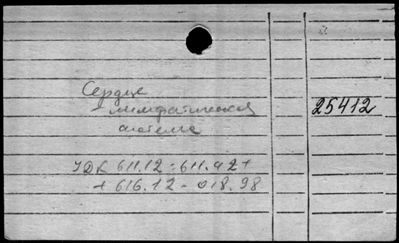 Сердце
лимфатическая
система
25412
УДК 611.12-611.42+
+616.12-018.98